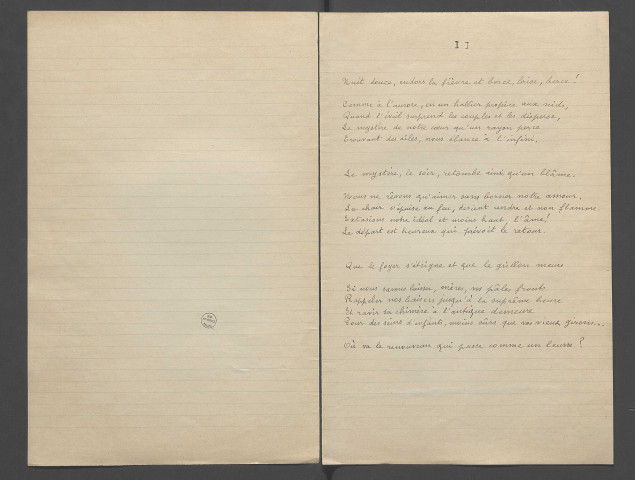 II
Nuit douce, endors la fièvre et berce, brise, berce!
Comme à l'aurore, en un hallier propice aux nids,
Quand l'éveil surprend les couples et les disperse,
Le mystère de notre cœur qu'un rayon perce
Trouvant des ailes, nous élance à l'infini.
Le mystère, le soir, retombe ainsi qu'un blâme.
Nous ne rêvons qu'aimer sans borner notre amour.
La chair s'épuise en feu, devient cendre et non flamme.
notre idéal et moins haut l'âme!
Le départ est heureux qui prévoit le retour.
Que le foyer s'éteigne et que le grillon meure
Si nous savons laisser, mères, vos pâles fronts
Rappeler nos baisers jusqu'à la suprême heure
Et ravir sa chimère à l'antique demeure
Pour des seins d'enfants, moins sûrs que vos vieux girons...
Où va le renouveau qui passe comme un leurre?